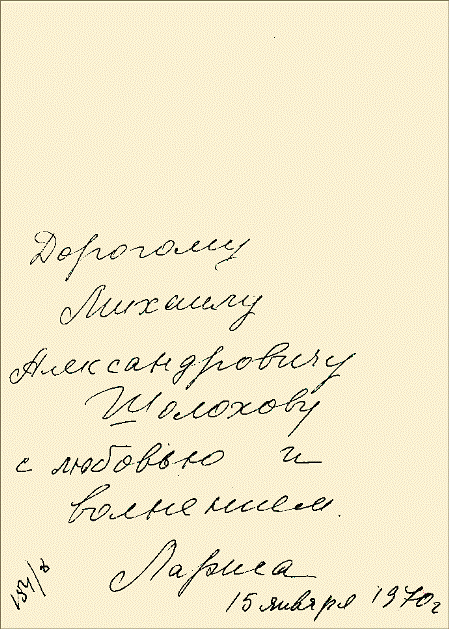 Дорогому
Михаилу
Александровичу
Шолохову
с любовью и
волнением.
Лариса
15 января 1970 г